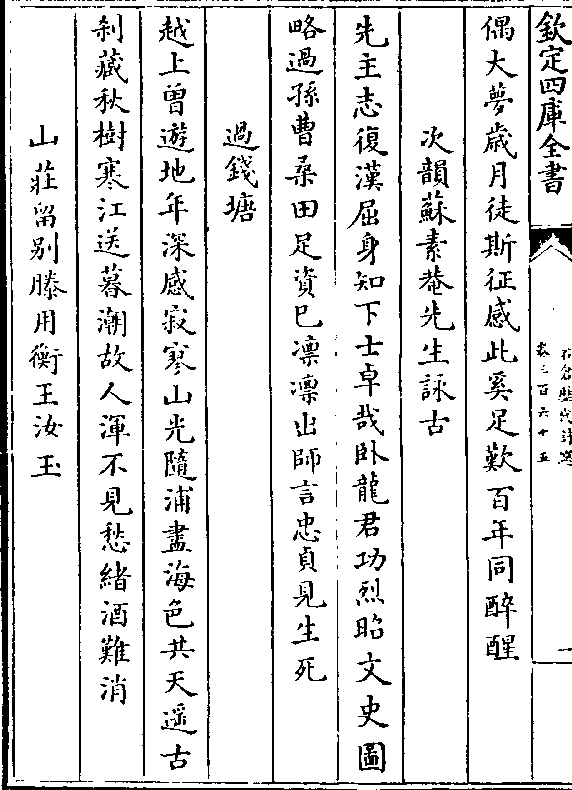 欽定四庫全書
石倉歷代詩選
卷三百六十五
一
偶大夢歲月徒斯征感此奚足歎百年同醉醒
次韻蘇素菴先生詠古
先主志復漢屈身知下士卓哉臥龍君功烈昭文史圖
略過孫曹桑田足資巳凛凛出師言忠貞見生死
過錢塘
越上曾遊地年深感寂寥山光隨浦盡海色共天遥古
刹藏秋樹寒江送暮潮故人渾不見愁緒酒難消
山莊留別滕用衡王汝玉